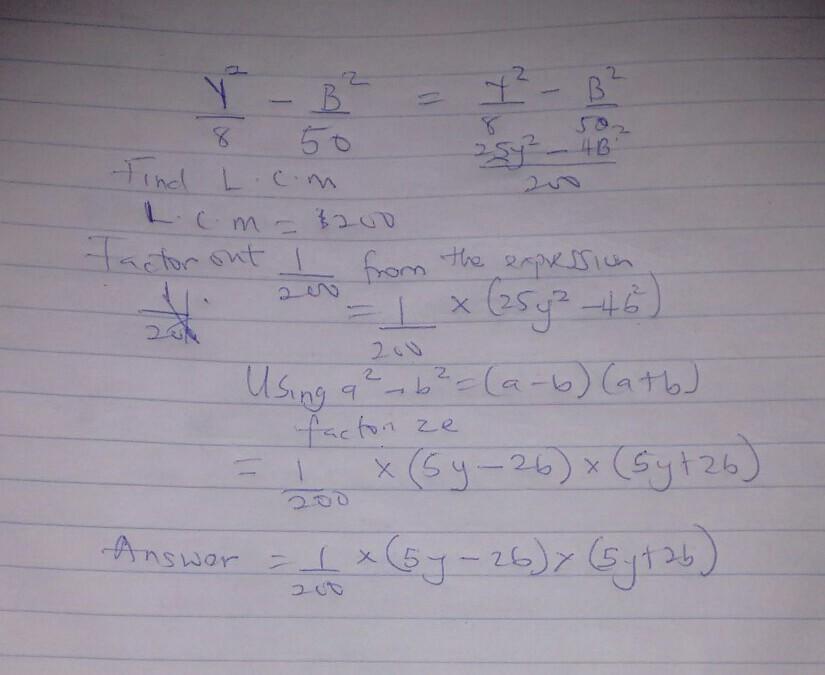 Y²/8 - B²/50 = Y²/8 - B²/50
25y² - 4B²/200
Find L.C.m
L.C.m = 200
Factor out 1/200 from the expression
= 1/200 × (25y² - 4b²)
Using a² - b² = (a-b) (a+b)
factorize
= 1/200 × (5y - 2b) × (5y + 2b)
Answer = 1/200 × (5y - 2b) × (5y + 2b)